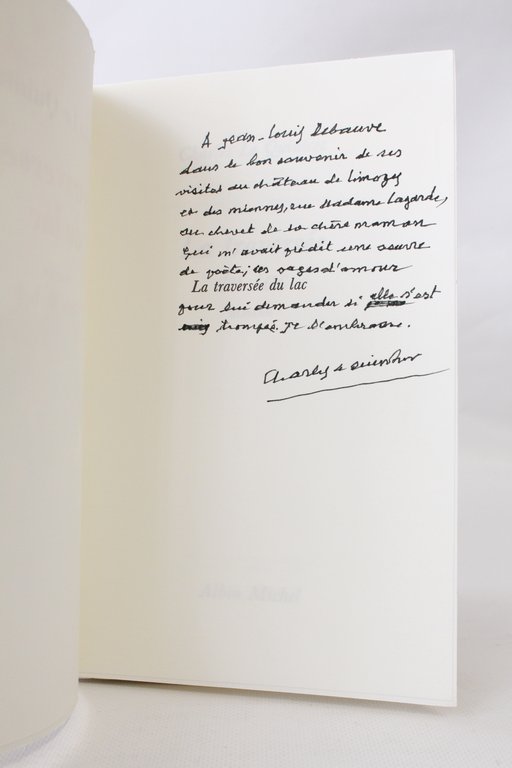 A Jean-Louis Debauve
dans le bon souvenir de ses
visites au château de Limozy
et des miennes, rue Madame Lagarde,
au chevet de sa chère maman
qui m'avait prédit une œuvre
de poète; ces pages d'amour
La traversée du lac
pour lui demander si elle s'est
trompée. Je l'embrasse.
Charles Le Quintrec
Albin Michel